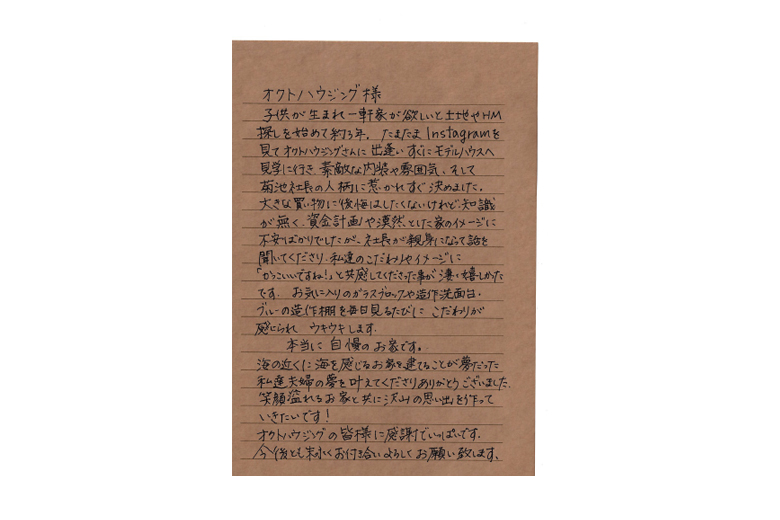 オクトハウジング様
子供が生まれ一軒家が欲しいと土地やHM
探しを始めて約3年。たまたまInstagramを
見てオクトハウジングさんに出逢いすぐにモデルハウスへ
見学に行き、素敵な内装や雰囲気、そして
菊池社長の人柄に惹かれすぐ決めました。
大きな買い物に後悔はしたくないけれど、知識
が無く、資金計画や漠然とした家のイメージに
不安ばかりでしたが、社長が親身になって話を
聞いてくださり、私達のこだわりやイメージに
「かっこいいですね!」と共感してくださった事が凄く嬉しかった
です。お気に入りのガラスブロックや造作洗面台、
ブルーの造作棚を毎日見るたびにこだわりが
感じられ ウキウキします。
本当に自慢のお家です。
海の近くに海を感じるお家を建てることが夢だった
私達夫婦の夢を叶えてくださりありがとうございました。
笑顔溢れるお家と共に沢山の思い出を作って
いきたいです!
オクトハウジングの皆様に感謝でいっぱいです。
今後とも末永くお付き合いよろしくお願い致します。